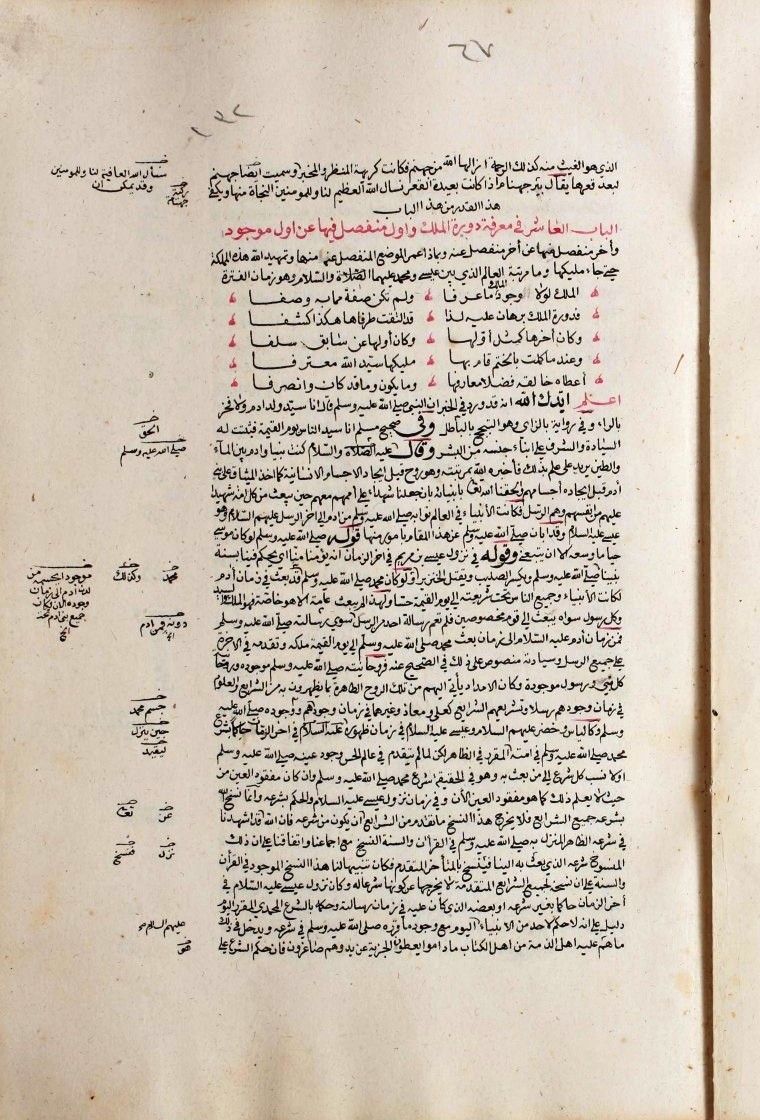 ٦٧
١٣٢
الذي هو الغيث منه كذلك الرحمة ازالها الله من جهنم فكانت كريهة المنظر والمخبر وسميت ايضا جهنم
لبعد قعرها يقال بئر جهنام اذا كانت بعيدة القعر نسال الله العظيم لنا وللمومنين النجاة منها ويكفى
هذا القدر من هذا الباب
الباب العاشر في معرفة دورة الملك واول منفصل فيها عن اول موجود
وآخر منفصل فيها عن آخر منفصل عنه وبماذا عمر الموضع المنفصل عنه منهما وتمهيد الله هذه المملكة
حتى جاء مليكها وما مرتبة العالم الذي بين عيسى ومحمد عليهما الصلاة والسلام وهو زمان الفترة
الملك لولا وجود الملك ما عرفا ولم تكن صفة مما به وصفا
فدورة الملك برهان عليه لذا قد التقت طرفاها هكذا كشفا
وكان آخرها كمثل اولها وكان اولها عن سابق سلفا
وعند ما كملت بالختم قام بها مليكها سيد الله معترفا
اعطاه خالقه فضلا معارفها وما يكون وما قد كان وانصرفا
اعلم ايدك الله انه قد ورد في الخبر ان النبي صلى الله عليه وسلم قال انا سيد ولد ادم ولا فخر
بالراء وفي رواية بالزاي وهو التبجح بالباطل وفي صحيح مسلم انا سيد الناس يوم القيمة فثبتت له
السيادة والشرف على ابناء جنسه من البشر وقال عليه الصلاة والسلام كنت نبيا وادم بين الماء
والطين يريد على علم بذلك فأخبره الله بمرتبته وهو روح قبل ايجاد الاجسام الانسانية كما اخذ الميثاق على بني
آدم قبل ايجاده اجسامهم والحقنا الله تعالى بانبيائه بان جعلنا شهداء على اممهم معهم حين يبعث من كل امة شهيدا
عليهم من انفسهم وهم الرسل فكانت الأنبياء في العالم نوابه صلى الله عليه وسلم من ادم الى آخر الرسل عليهم السلام وهو
عيسى عليه السلام وقد ابان صلى الله عليه وسلم عن هذا المقام بامور منها قوله صلى الله عليه وسلم لو كان موسى
حيا ما وسعه الا ان يتبعني وقوله في نزول عيسى بن مريم في آخر الزمان انه يؤمنا منا اي يحكم فينا بسنة
نبينا صلى الله عليه وسلم ويكسر الصليب ويقتل الخنزير ولو كان محمد صلى الله عليه وسلم قد بعث في زمان آدم
لكانت الأنبياء وجميع الناس تحت شريعته الى يوم القيمة حسا ولهذا لم يبعث عامة الا هو خاصة فهو الملك والسيد
وكل رسول سواه يبعث الى قوم مخصوصين فلم تعم رسالة احد من الرسل سوى رسالته صلى الله عليه وسلم
فمن زمان آدم عليه السلام الى زمان بعث محمد صلى الله عليه وسلم الى يوم القيمة ملكه وتقدمه في الآخرة
على جميع الرسل وسيادته منصوص على ذلك في الصحيح عنه فروحانيته صلى الله عليه وسلم موجودة وروحانية
كل نبي ورسول موجودة وكان الامداد يأتي اليهم من تلك الروح الطاهرة بما يظهرون به من الشرايع والعلوم
في زمان وجودهم رسلا وتشريعهم الشرايع كعلي ومعاذ وغيرهما في زمان وجودهم ووجوده صلى الله عليه
وسلم وكالياس وخضر عليهم السلام وعيسى عليه السلام في زمان ظهوره عليه السلام في آخر الزمان حاكما بشرع
محمد صلى الله عليه وسلم في امته المقرر في الظاهر لكن لما لم يتقدم في عالم الحس وجود عينه صلى الله عليه وسلم
اولا نسب كل شرع الى من بعث به وهو في الحقيقة شرع محمد صلى الله عليه وسلم وان كان مفقود العين من
حيث لا يعلم ذلك كما هو مفقود العين الآن وفي زمان نزول عيسى عليه السلام والحكم بشرعه وأما نسخ الله
بشرعه جميع الشرايع فلا يخرج هذا النسخ ما تقدم من الشرايع ان يكون من شرعه فان الله قد اشهدنا
في شرعه الظاهر المنزل به صلى الله عليه وسلم في القرآن والسنة النسخ مع اجماعنا واتفاقنا على ان ذلك
المنسوخ شرعه الذي بعث به الينا فينسخ بالمتأخر المتقدم فكان تنبيها لنا هذا النسخ الموجود في القرآن
والسنة على ان نسخه لجميع الشرايع المتقدمة لا يخرجها عن كونها شرعا له وكان نزول عيسى عليه السلام في
آخر الزمان حاكما بغير شرعه او بعضه الذي كان عليه في زمان رسالته وحكمه بالشرع المحمدي المقرر اليوم
دليل على انه لا حكم لاحد من الانبياء اليوم مع وجود ما قرره صلى الله عليه وسلم في شرعه ويدخل في ذلك
ما هم عليه اهل الذمة من اهل الكتاب ما داموا يعطون الجزية عن يد وهم صاغرون فان حكم الشرع على
نسأل الله العافية لنا وللمومنين
وقد يمكن ان
ركية
جهنام
الحق
صلى الله عليه وسلم
محمد
وكذلك
موجودا بجسمه من
لدن ادم الى زمان
وجوده الآن لكان
جميع بني ادم تحت
جسم محمد
حين ينزل
عن
تعالى
نزل
فنسخ
عليهم السلام صح
هو